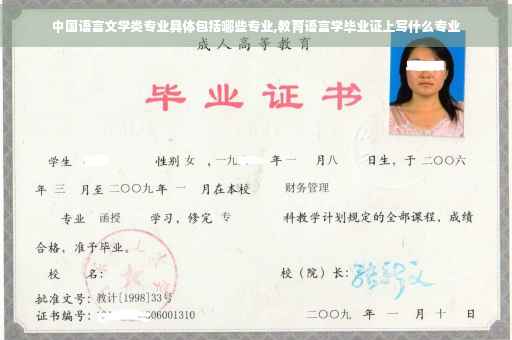 中国语言文学类专业具体包括哪些专业,教育语言学毕业证上写什么专业
成人高等教育
毕业证书
学生 性别 女 ，一九 年 一 月 八 日生，于 二〇〇六
年 三 月至 二〇〇九 年 一 月在本校 财务管理
专业 函授 学习，修完 专 科教学计划规定的全部课程，成绩
合格，准予毕业。
校 名： 校（院）长：
批准文号：教计[1998]33号
证书编号： 06001310 二〇〇九 年 一 月 十 日